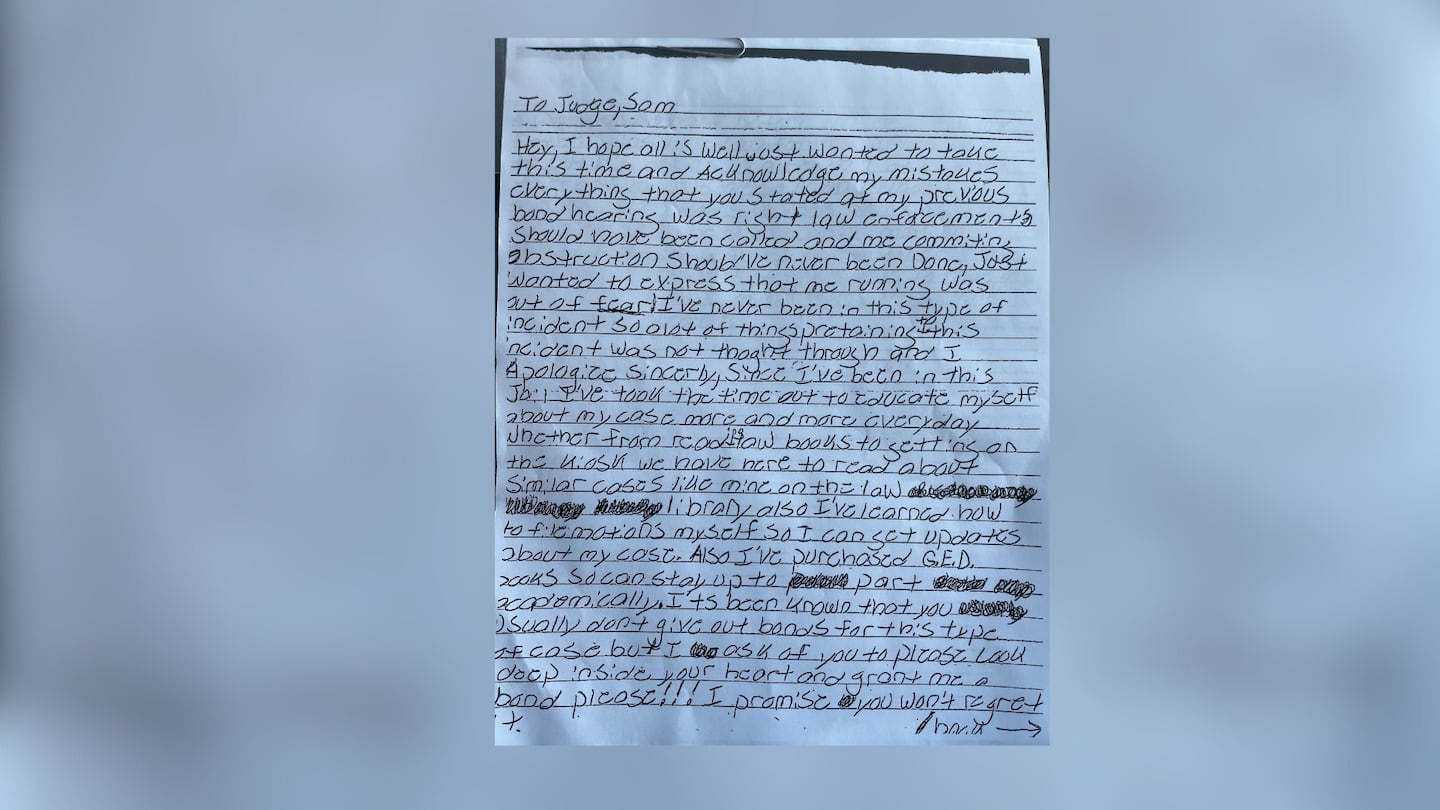 To Judge, Sam
Hey, I hope all is well just wanted to take
this time and Acknowledge my mistakes
everything that you stated at my previous
bond hearing was right law enforcements
should have been called and me commiting
obstruction should've never been Done, Just
wanted to express that me running was
out of fear! I've never been in this type of
incident so alot of things pretaining to this
incident was not thoght through and I
Apologize sincerly, Since I've been in this
Jail I've took the time out to educate myself
about my case more and more everyday
whether from reading law books to getting on
the kiosk we have here to read about
similar cases like mine on the law
library also I've learned how
to file motions myself so I can get updates
about my case. Also I've purchased G.E.D.
books so can stay up to part
academically. It's been known that you
usually don't give out bonds for this type
of case but I ask of you to please look
deep inside your heart and grant me a
bond please!!! I promise you won't regret
it. /back →